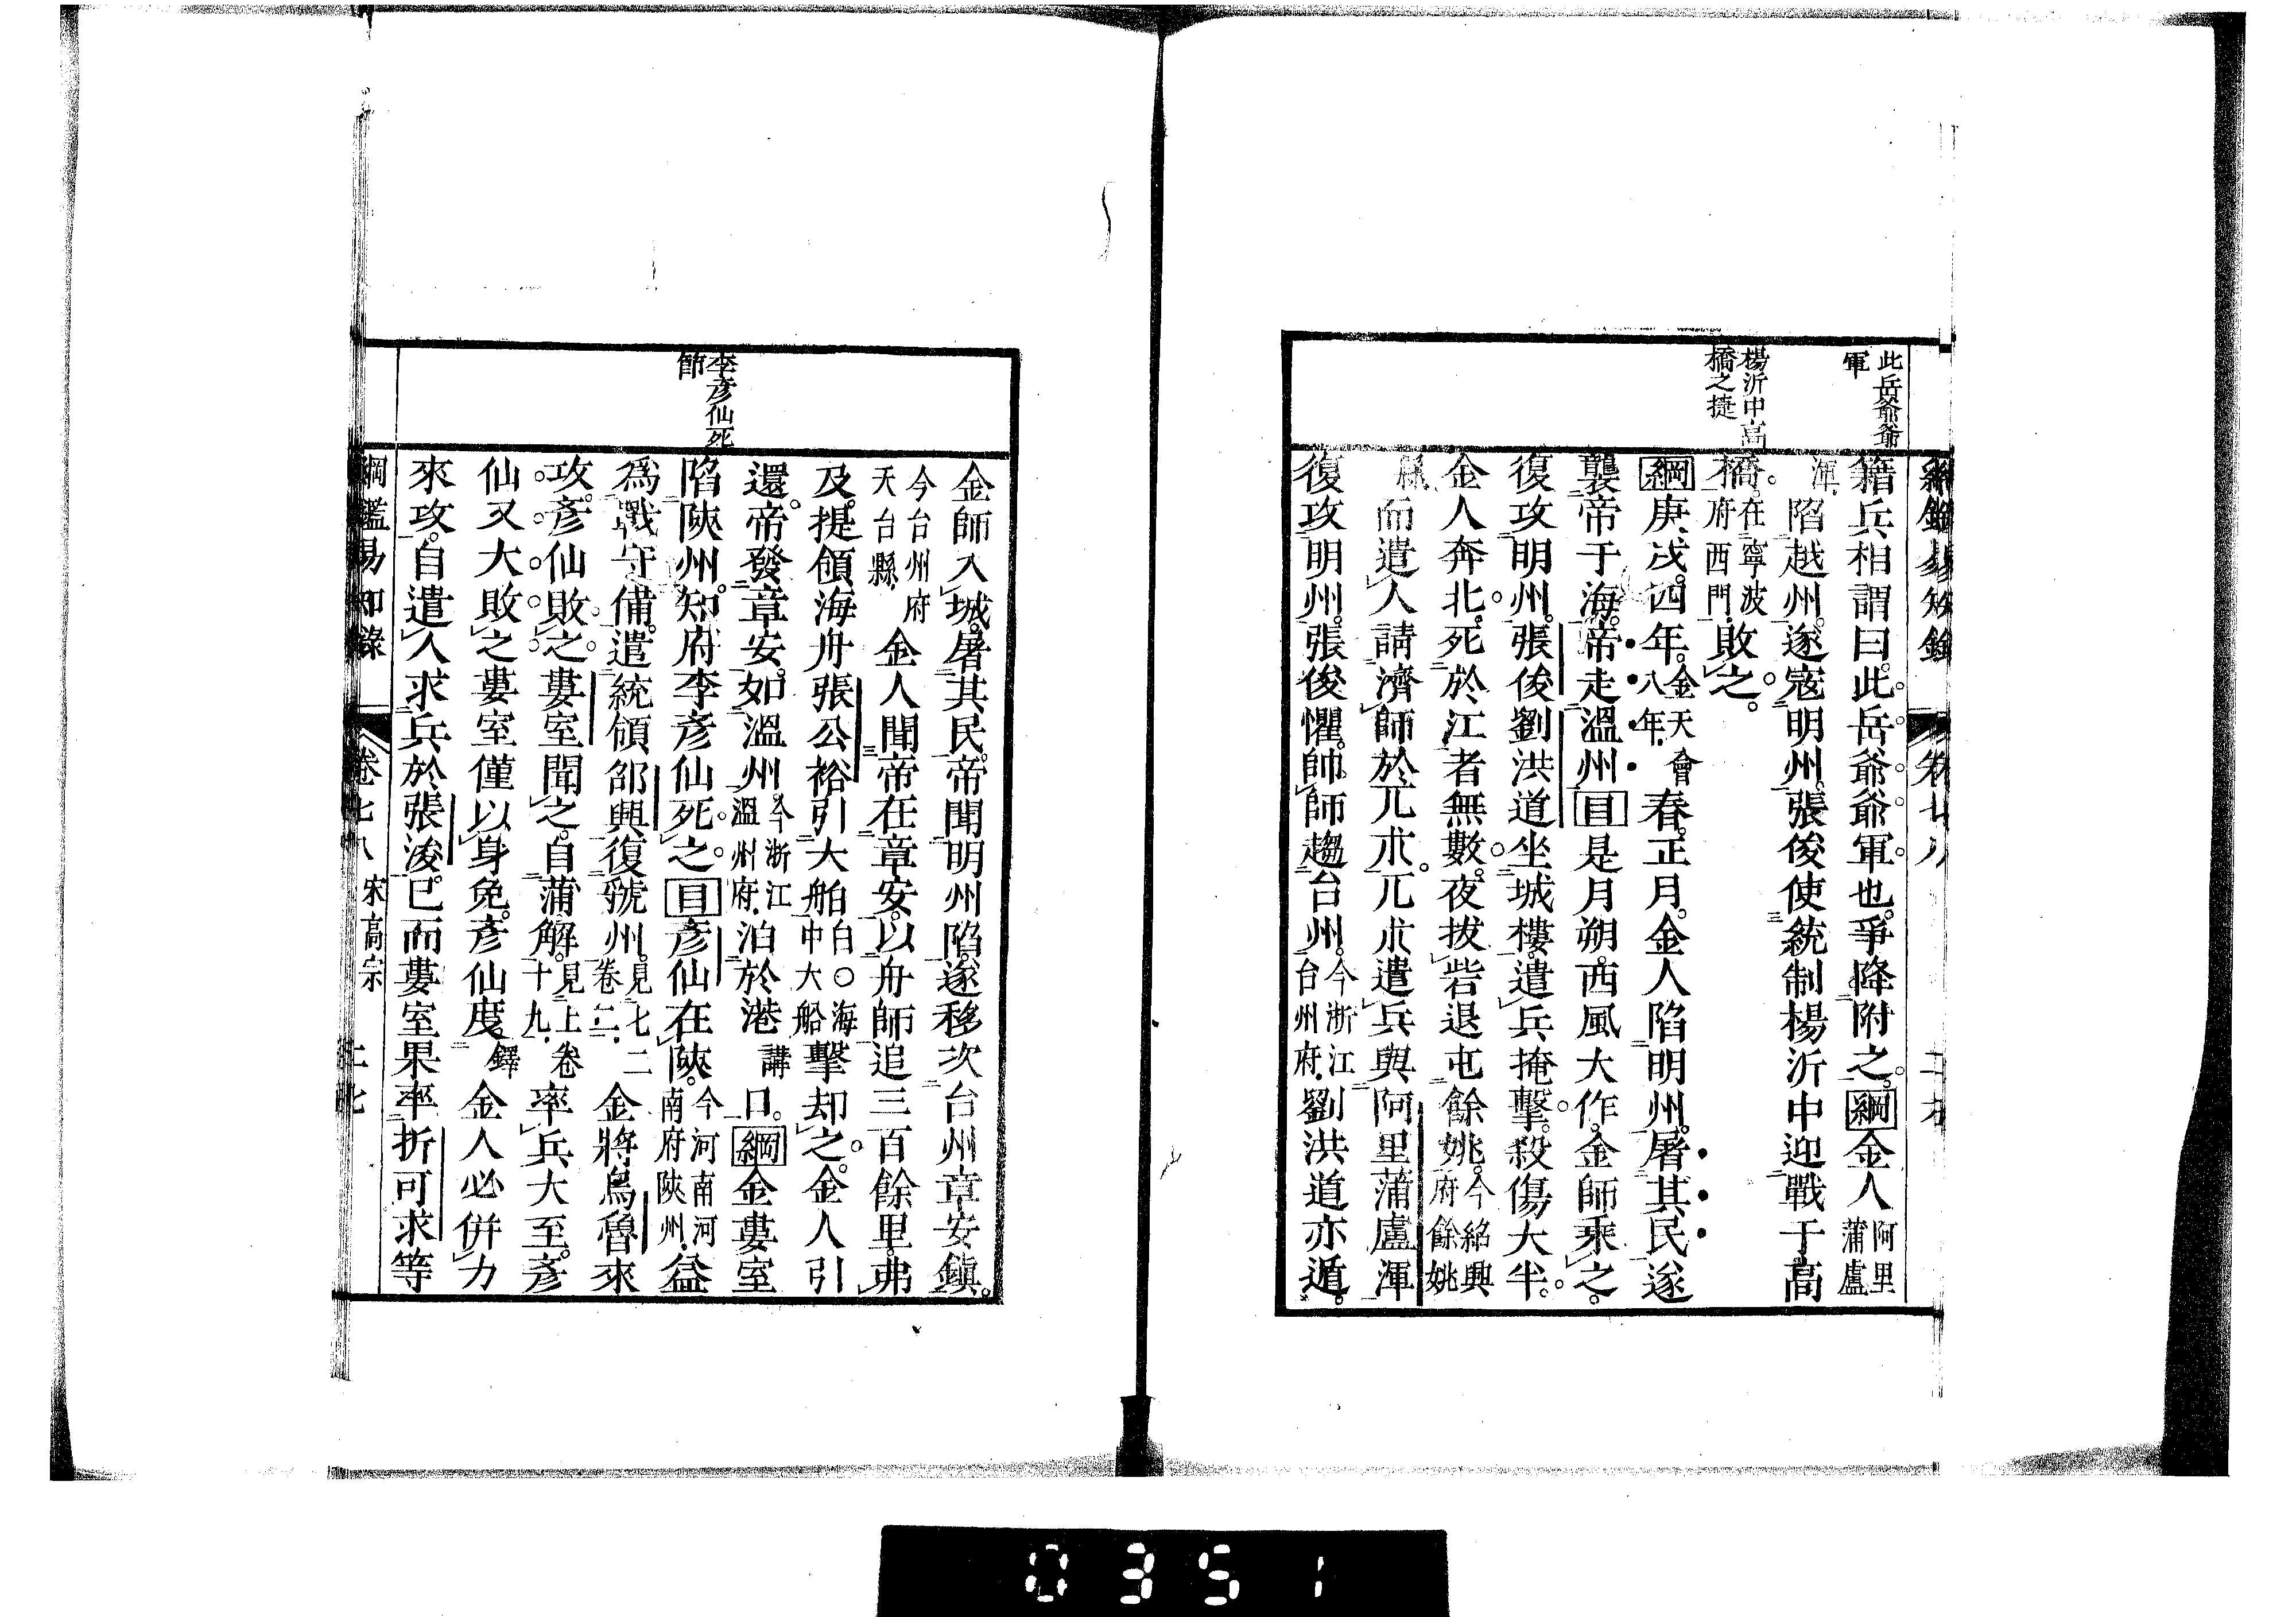 此岳爺爺
軍
楊沂中高
橋之捷
籍兵相謂曰此岳爺爺軍也爭降附之綱金人阿里蒲盧
渾陷越州遂寇明州張俊使統制楊沂中迎戰于高
橋在寧波府西門敗之
綱庚戌四年金天會八年春正月金人陷明州屠其民遂
襲帝于海帝走溫州目是月朔西風大作金師乘之
復攻明州張俊劉洪道坐城樓遣兵掩擊殺傷大半
金人奔北死於江者無數夜拔砦退屯餘姚今紹興府餘姚
縣而遣人請濟師於兀朮兀朮遣兵與阿里蒲盧渾
復攻明州張俊懼帥師趨台州今浙江台州府劉洪道亦遁
李彥仙死
節
金師入城屠其民帝聞明州陷遂移次台州章安鎮
今台州府天台縣金人聞帝在章安以舟師追三百餘里弗
及提領海舟張公裕引大舶白○海中大船擊却之金人引
還帝發章安如溫州今浙江溫州府泊於港講口綱金婁室
陷陝州知府李彥仙死之目彥仙在陝今河南河南府陝州益
爲戰守備遣統領邵興復虢州見七二卷二金將烏魯來
攻彥仙敗之婁室聞之自蒲解見上卷十九率兵大至彥
仙又大敗之婁室僅以身免彥仙度鐸金人必併力
來攻自遣人求兵於張浚已而婁室果率折可求等
綱鑑易知錄 卷七八 宋高宗
0351